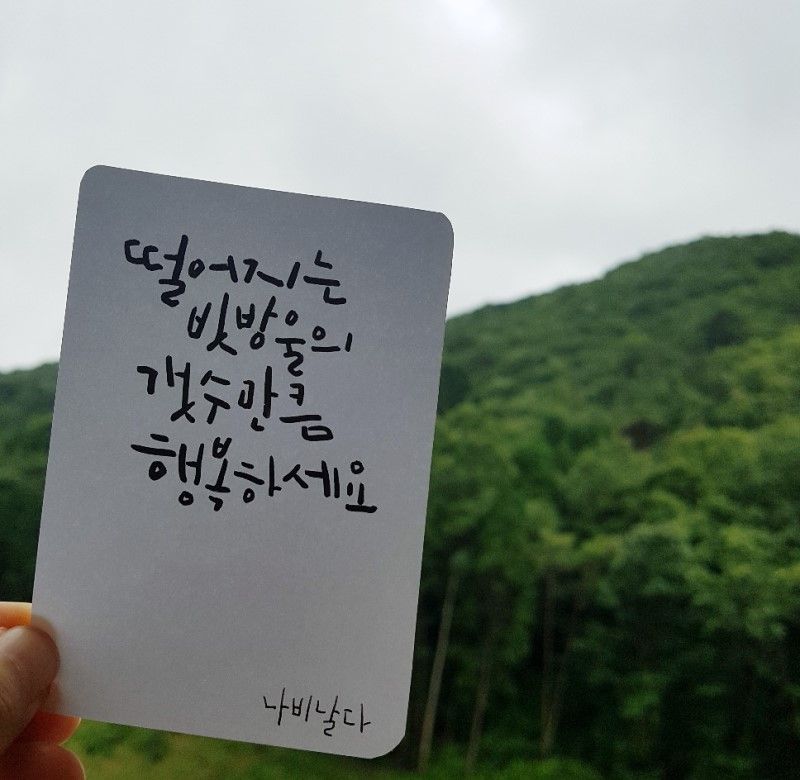 떨어지는
빗방울의
갯수만큼
행복하세요
나비날다